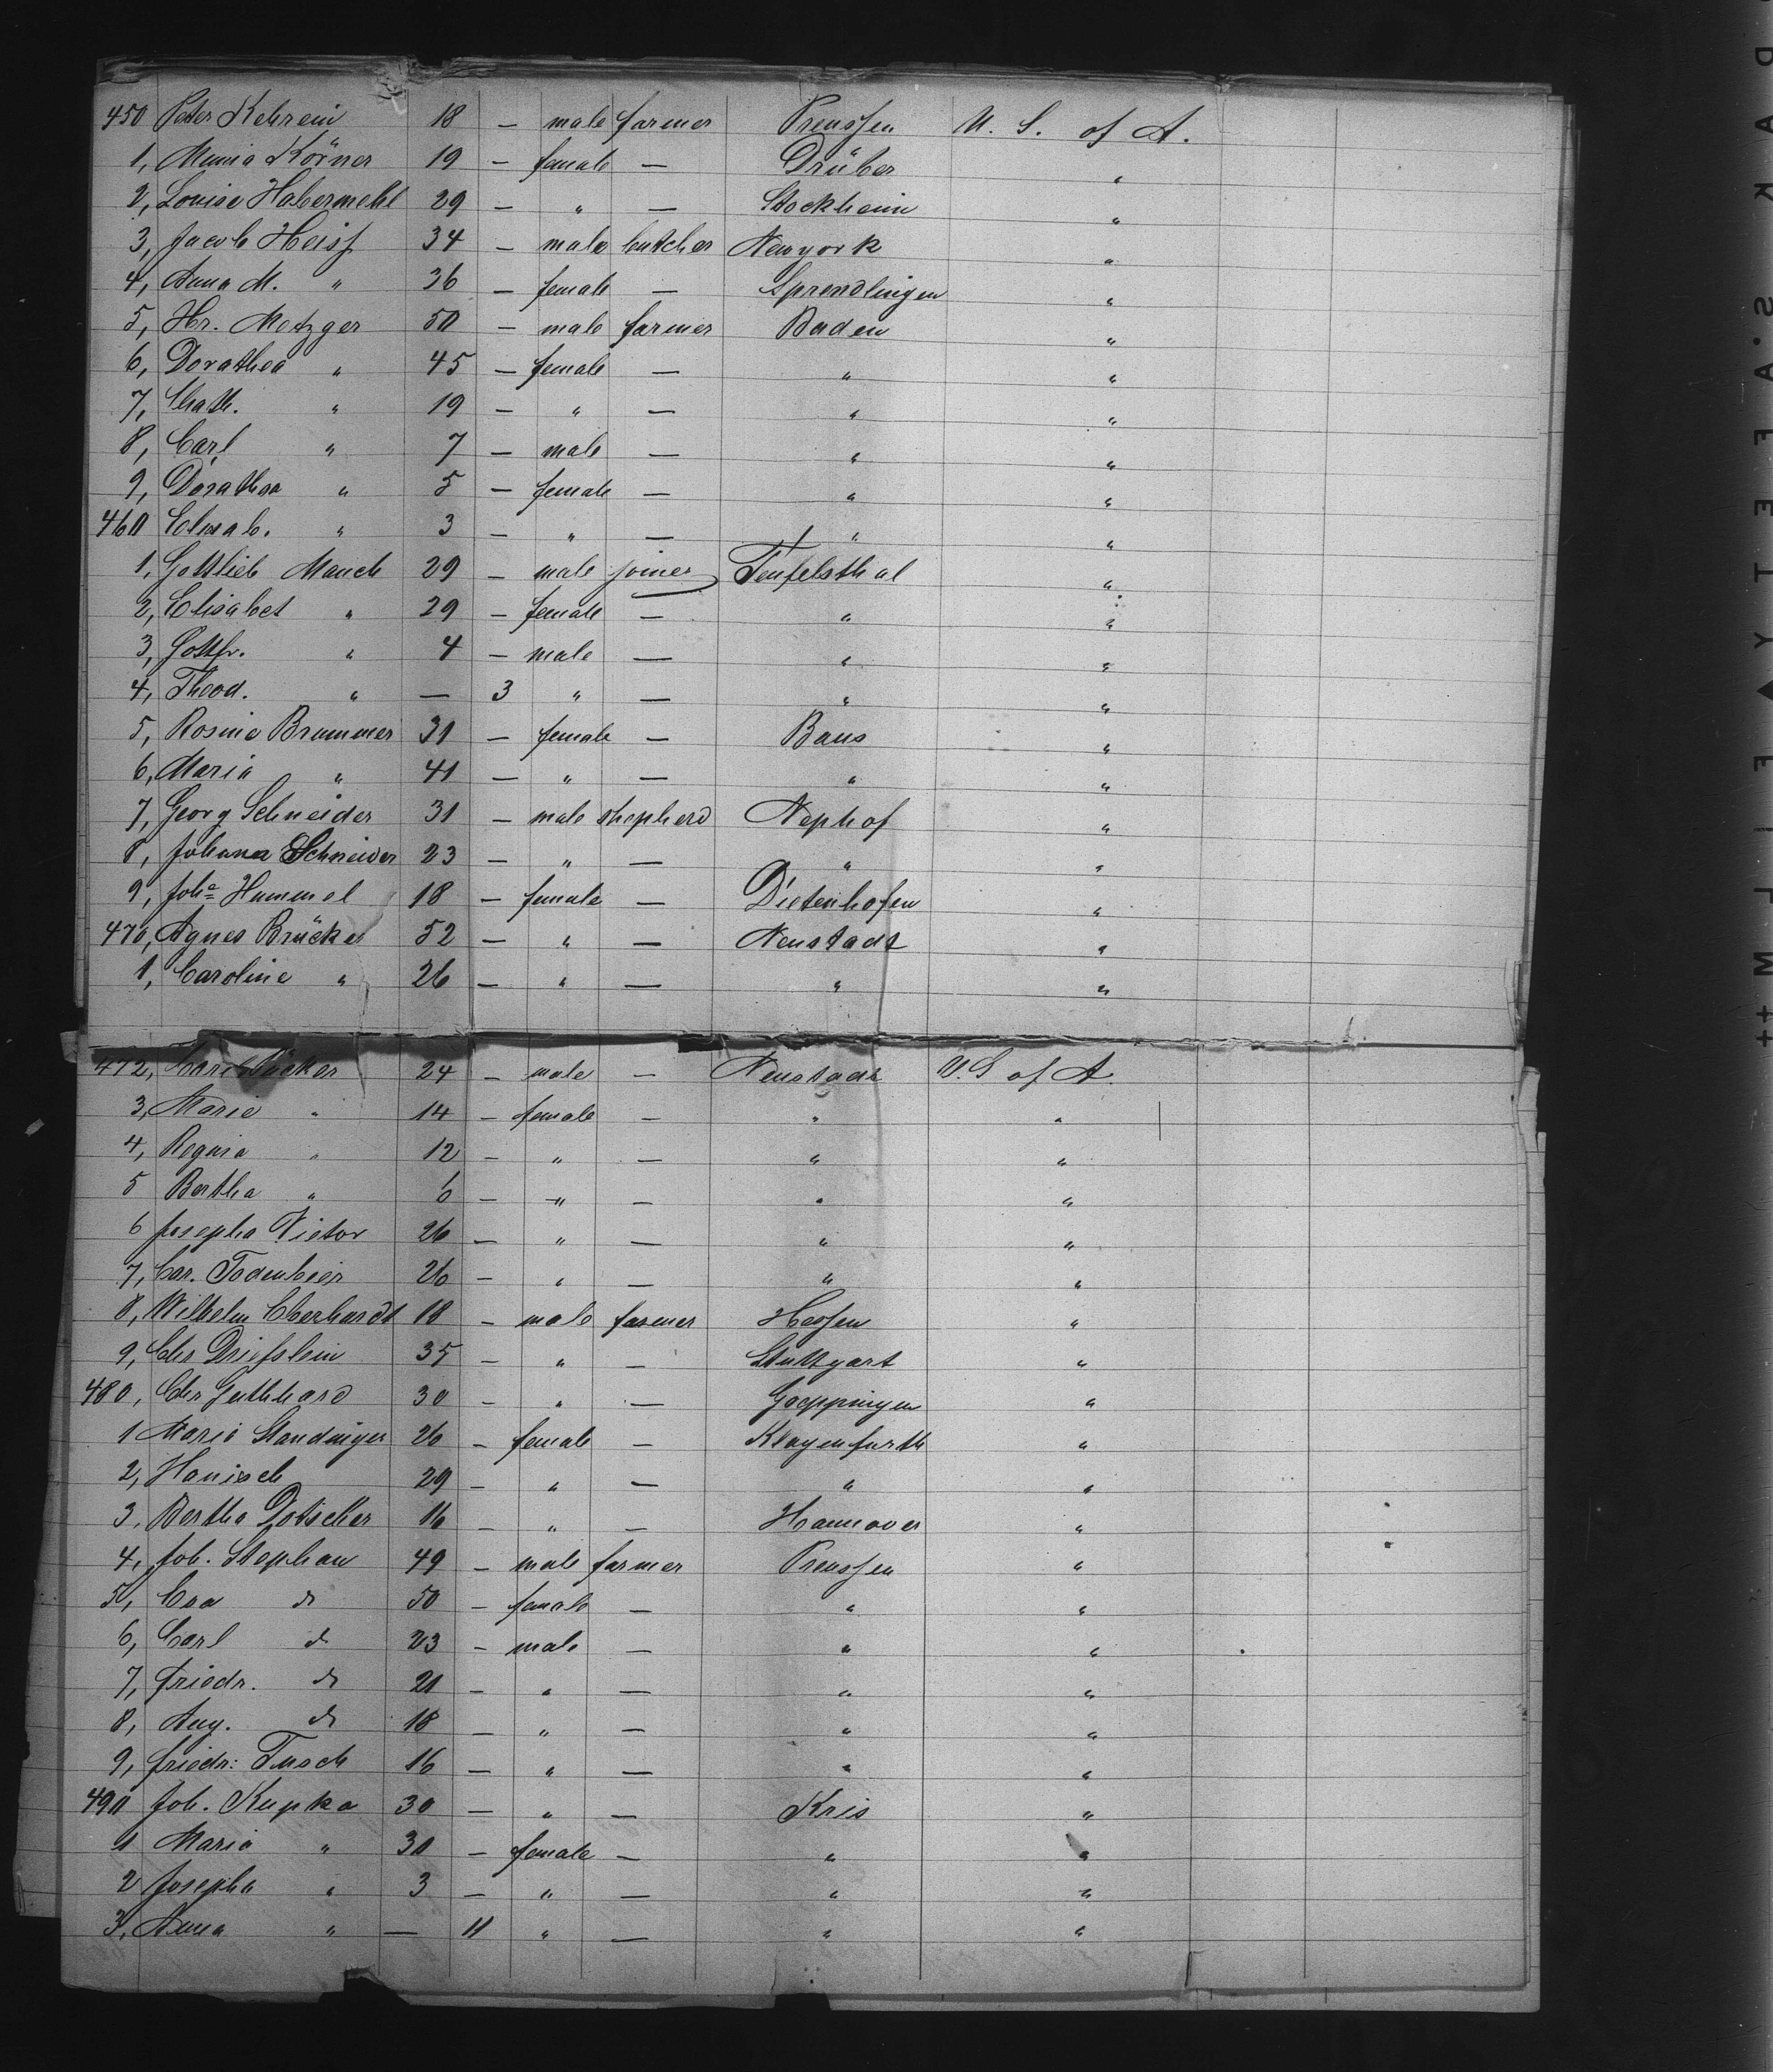 450 Peter Kehrein 18 — male farmer Preussen U. S. of A.
1, Körner 19 — female — Drüber "
2, Louise Habermehl 29 — " — Stockheim "
3, Jacob Heiss 34 — male butcher Newyork "
4, Anna M. " 36 — female — Sprendlingen "
5, Hr. Metzger 50 — male farmer Baden "
6, Dorathea " 45 — female — " "
7, Cath. " 19 — " — " "
8, Carl " 7 — male — " "
9, Dorathea " 5 — female — " "
460 Elisab. " 3 — " — " "
1, Gottlieb Mauch 29 — male joiner Teufelsthal "
2, Elisabet " 29 — female — " "
3, Gottfr. " 4 — male — " "
4, Theod. " — 3 " — " "
5, Rosina Brummer 31 — female — Baus "
6, Maria " 41 — " — " "
7, Georg Schneider 31 — male shepherd Nephof "
8, Johanna Schneider 23 — " — " "
9, Joha Hummel 18 — female — Dietenhofen "
470, Agnes Brücker 52 — " — Neustadt "
1, Caroline " 26 — " — " "
472, Carl 24 — male — Neustadt U.S of A.
3, Marie " 14 — female — " "
4, Regina " 12 — " — " "
5 Bertha " 6 — " — " "
6 Josepha Victor 26 — " — " "
7, Car. 26 — " — " "
8, Wilhelm Eberhardt 18 — male farmer Hessen "
9, Chr 35 — " — Stuttgart "
480, Chr Guthhard 30 — " — Goeppingen "
1 Maria Standinger 26 — female — Klagenfurth "
2, Hanisch 29 — " — " "
3, Bertha Dotscher 16 — " — Hannover "
4, Joh. Stephan 49 — male farmer Preussen "
5, Eva do 50 — female — " "
6, Carl do 23 — male — " "
7, Friedr. do 21 — " — " "
8, Aug. do 18 — " — " "
9, Friedr: Tusch 16 — " — " "
490 Joh. Kupka 30 — " — Kris "
1 Maria " 30 — female — " "
2 Josepha " 3 — " — " "
3, Anna " — 11 " — " "